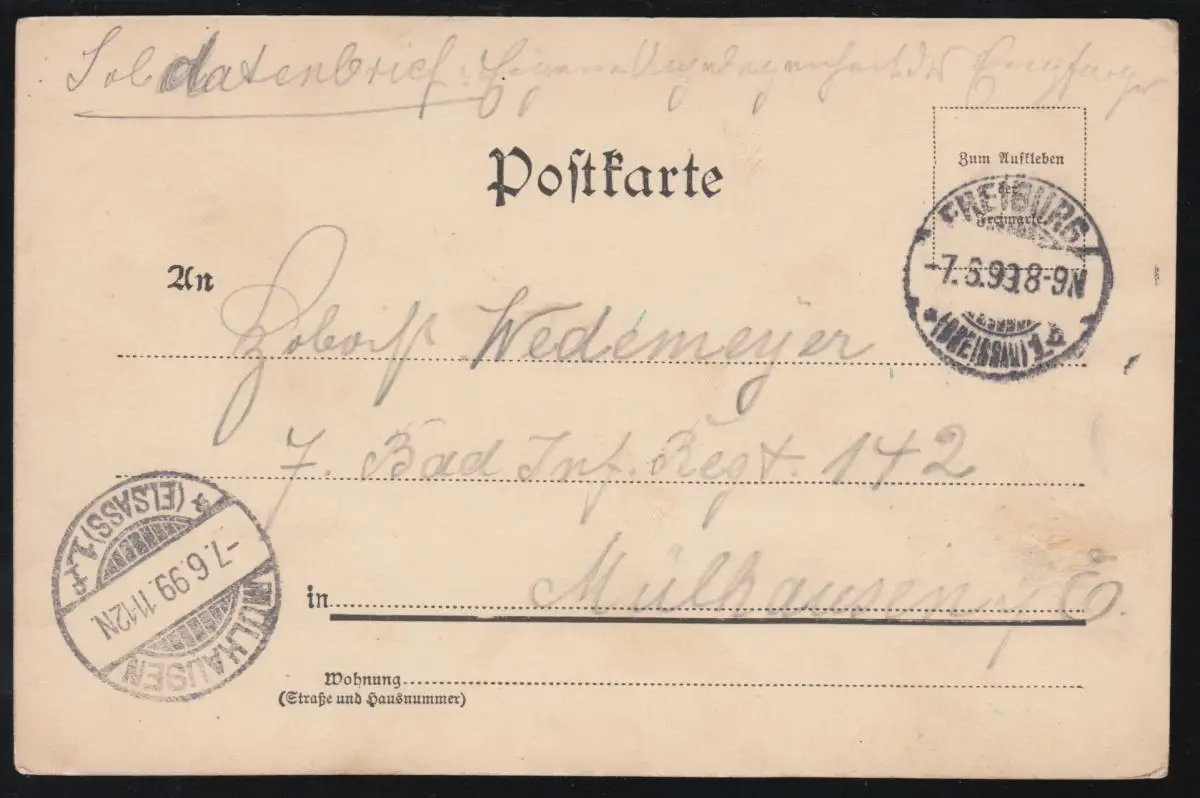 Soldatenbrief. Eigene Angelegenheit des Empfängers
Postkarte
Zum Aufkleben
der
Freimarke.
FREIBURG
-7.6.99.8-9N
(BREISGAU) 1
An
Hoboist Wedemeyer
7. Bad Inf. Regt. 142
in Mülhausen i/E.
MÜLHAUSEN
-7.6.99.11-12N
(ELSASS) 1
Wohnung
(Straße und Hausnummer)